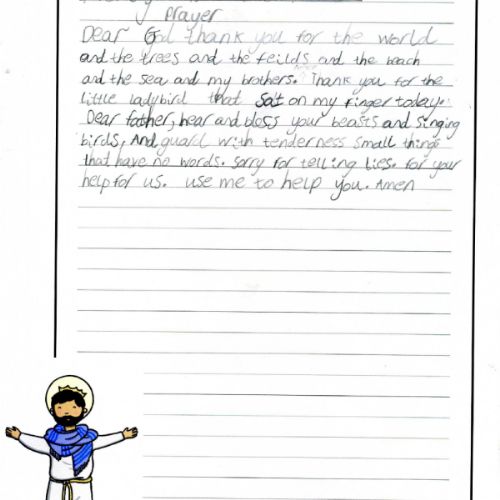 Prayer
Dear God thank you for the world
and the trees and the feilds and the beach
and the sea and my brothers. Thank you for the
little ladybird that sat on my finger today.
Dear father, hear and bless your beasts and singing
birds, And guard with tenderness small things
that have no words. sorry for telling lies. for your
help for us. use me to help you. Amen